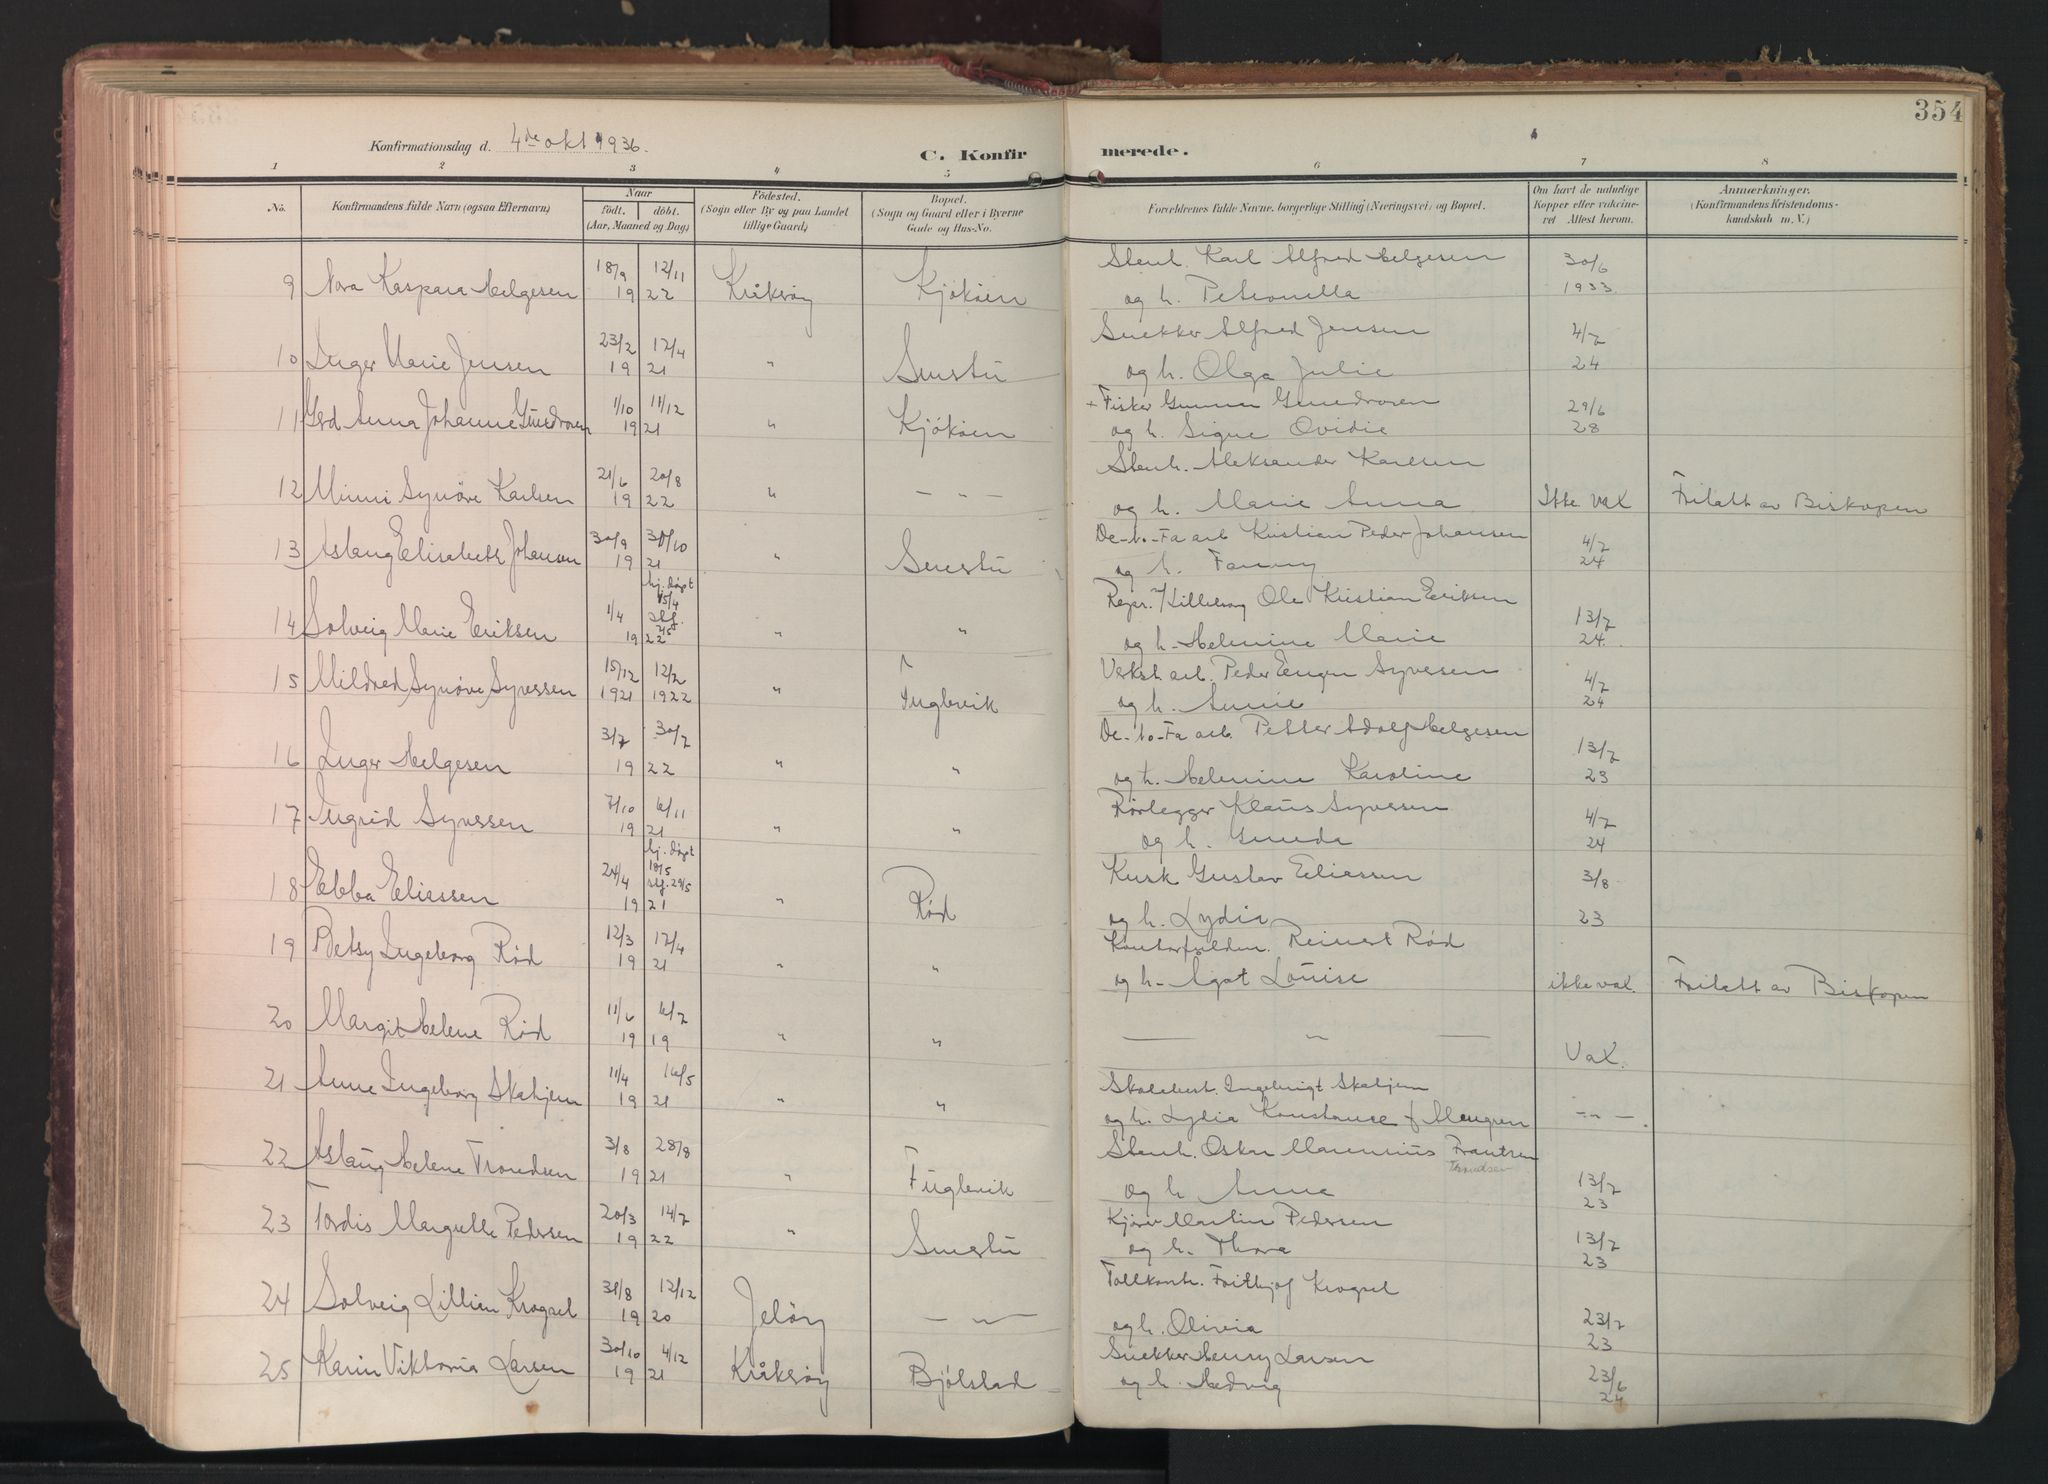 354
Konfirmationsdag d. 4de okt 1936.
C. Konfirmerede.
1 2 3 4 5 6 7 8
No. Konfirmandens fulde Navn (ogsaa Efternavn) Naar født. døbt. (Aar, Maaned og Dag) Fødested. (Sogn eller By og paa Landet tillige Gaard) Bopæl. (Sogn og Gaard eller i Byerne Gade og Hus-No. Forældrenes fulde Navne, borgerlige Stilling (Næringsvei) og Bopæl. Om havt de naturlige Kopper eller vaccineret Attest herom. Anmærkninger. (Konfirmandens Kristendomskundskab m. V.)
9 Nora Kaspara Helgesen 18/9 12/11 1922 Kråkerøy Kjøkøen Stenh. Karl Alfred Helgesen og h. Petronella 30/6 1933
10 Inger Marie Jensen 23/2 17/4 1921 " Smertu Snekker Alfred Jensen og h. Olga Julie 4/7 24
11 Gerd Anna Johanne Gundrosen 1/10 11/12 1921 " Kjøkøen + Fisker Gunnar Gundrosen og h. Signe Ovidie 29/6 28
12 Minni Synöve Karlsen 21/6 20/8 1922 " — " — Stenh. Aleksander Karlsen og h. Marie Anna Ikke vax Fritatt av Biskopen
13 Aslaug Elisabeth Johansen 30/9 30/10 1921 " Smertu De-no-Fa arb Kristian Peder Johansen og h. Fanny 4/7 24
14 Solveig Marie Eriksen 1/4 hj. døpt 15/4 stf. 2/5 1922 " " Repr. v/Lilleborg Ole Kristian Eriksen og h. Helmine Marie 13/7 24
15 Mildred Synöve Syversen 15/12 1921 12/2 1922 " Fuglevik Verkst arb. Peder Eugen Syversen og h. Annie 4/7 24
16 Inger Helgesen 3/7 30/7 1922 " " De-no-Fa arb. Petter Adolf Helgesen og h. Helmine Karoline 13/7 23
17 Ingrid Syversen 7/10 6/11 1921 " " Rørlegger Klaus Syversen og h. Gunda 4/7 24
18 Ebba Eliassen 24/4 hj. døpt 18/5 stf. 29/5 1921 " Rød Kusk Gustav Eliassen og h. Lydia 3/8 23
19 Betsy Ingeborg Rød 12/3 17/4 1921 " " Kontorfuldm. Reinert Rød og h. Agot Louise ikke vax. Fritatt av Biskopen
20 Margit Helene Rød 11/6 6/7 1919 " " — " — Vax.
21 Anne Ingeborg Skahjem 11/4 16/5 1921 " " Skolebest. Ingebrigt Skahjem og h. Lydia Konstanse f. — " —
22 Aslaug Helene Trondsen 3/8 28/8 1921 " Fuglevik Stenh. Oskar Marenius Frantsen Throndsen og h Anna 13/7 23
23 Tordis Margrethe Pedersen 20/3 14/7 1922 " Smertu Kjører Martin Pedersen og h. Thora 13/7 23
24 Solveig Lillian Krogsel 31/8 12/12 1920 Jeløy — " — Tollkontr. Frithjof Krogsel og h. Olivia 23/7 23
25 Karin Viktoria Larsen 30/10 4/12 1921 Kråkerøy Bjølstad Snekker Henry Larsen og h. Hedvig 23/6 24